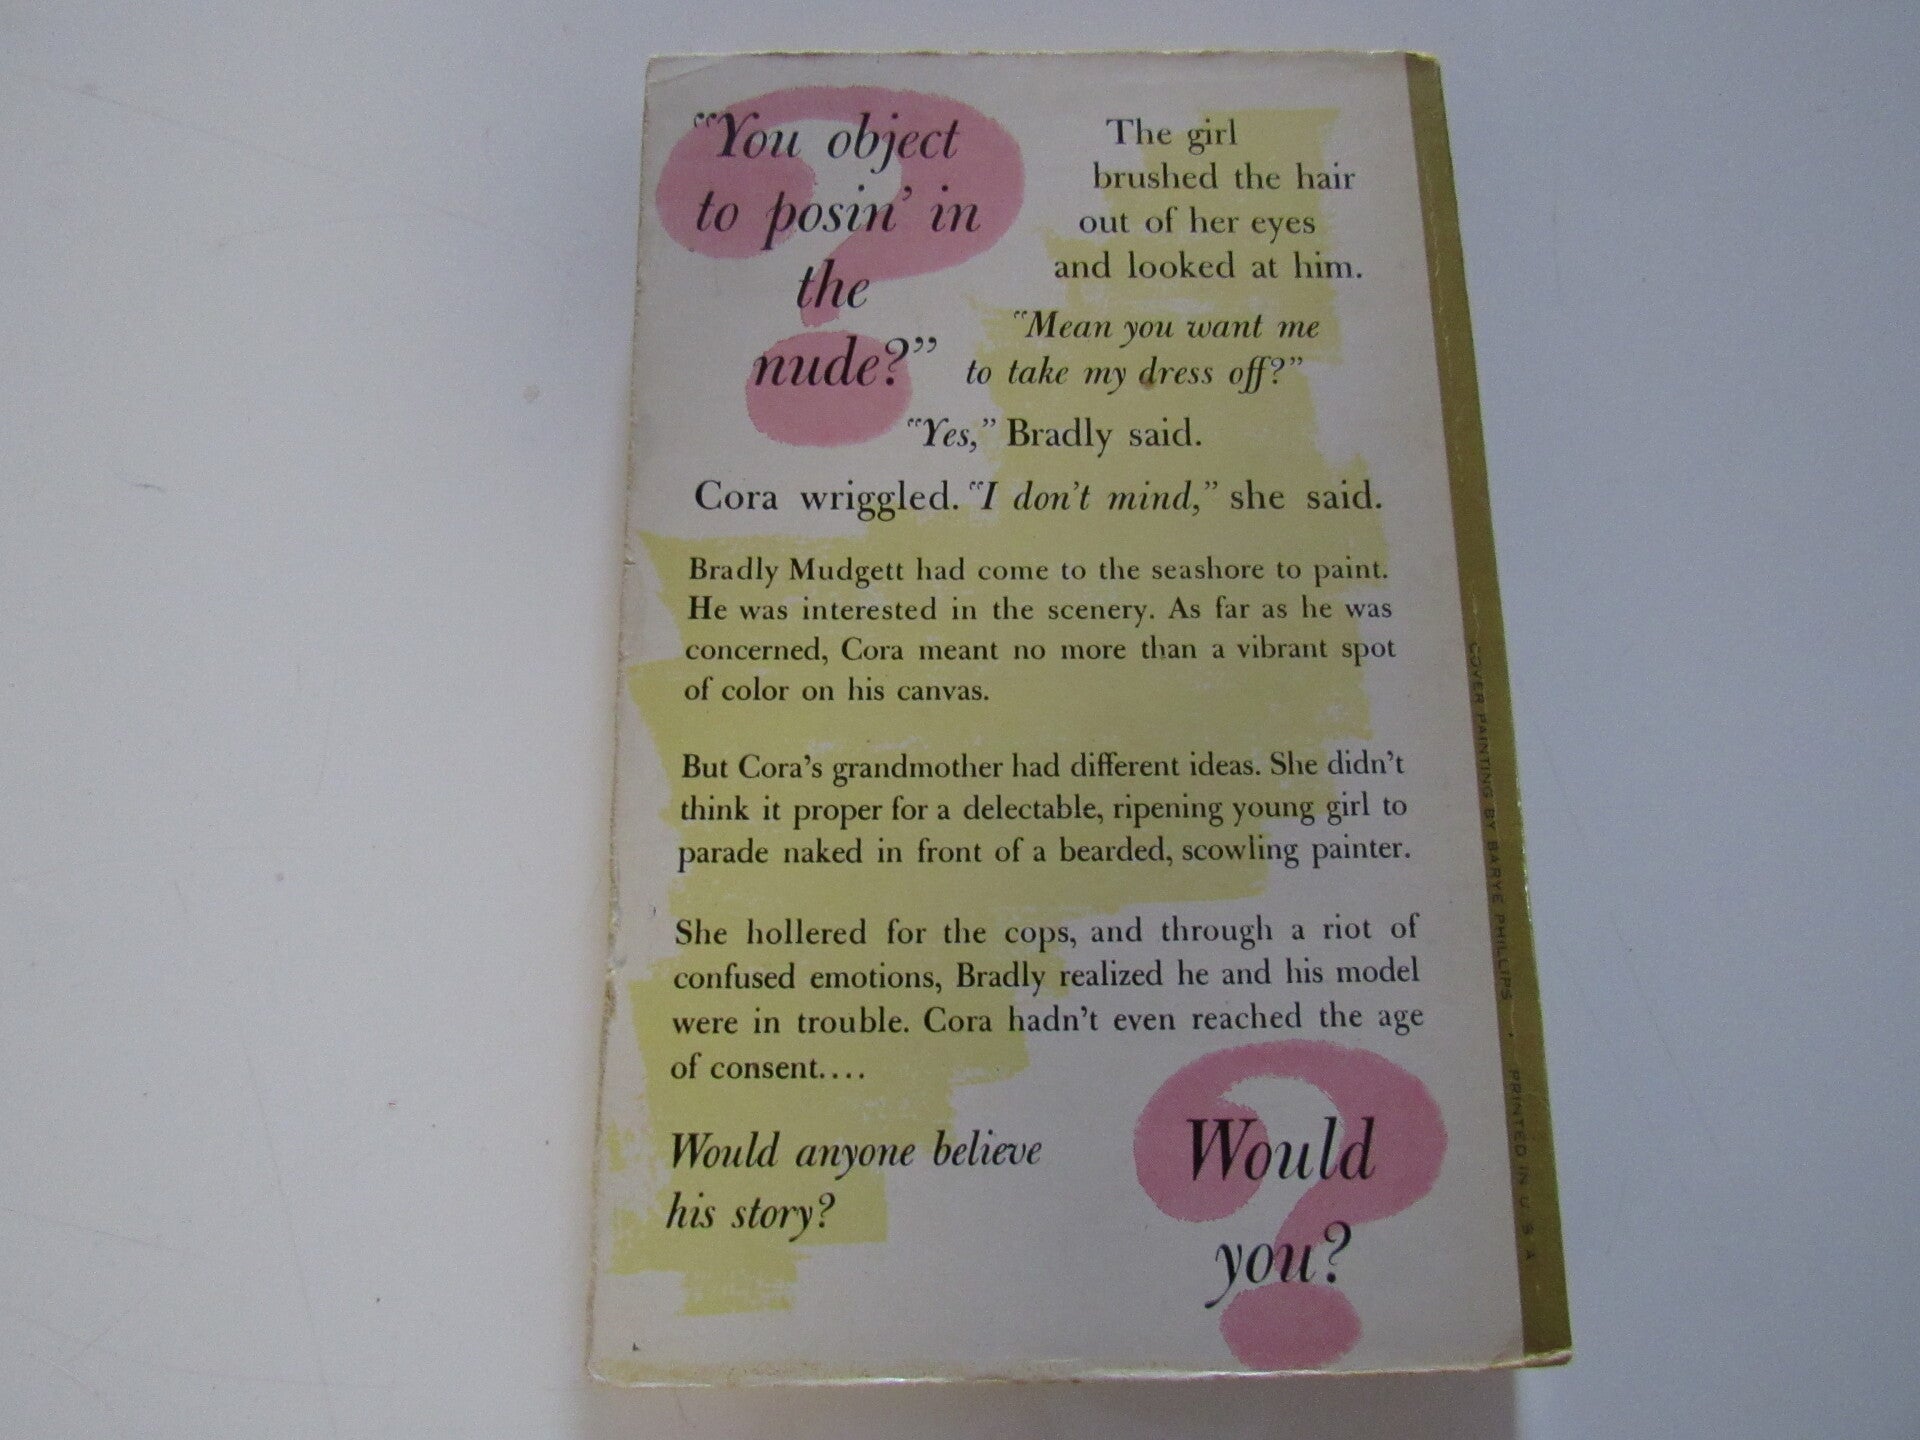 “You object
to posin’ in
the
nude?”
The girl
brushed the hair
out of her eyes
and looked at him.
“Mean you want me
to take my dress off?”
“Yes,” Bradly said.
Cora wriggled. “I don’t mind,” she said.
Bradly Mudgett had come to the seashore to paint.
He was interested in the scenery. As far as he was
concerned, Cora meant no more than a vibrant spot
of color on his canvas.
But Cora’s grandmother had different ideas. She didn’t
think it proper for a delectable, ripening young girl to
parade naked in front of a bearded, scowling painter.
She hollered for the cops, and through a riot of
confused emotions, Bradly realized he and his model
were in trouble. Cora hadn’t even reached the age
of consent....
Would anyone believe
his story?
Would
you?
COVER PAINTING BY BARYE PHILLIPS · PRINTED IN U S A